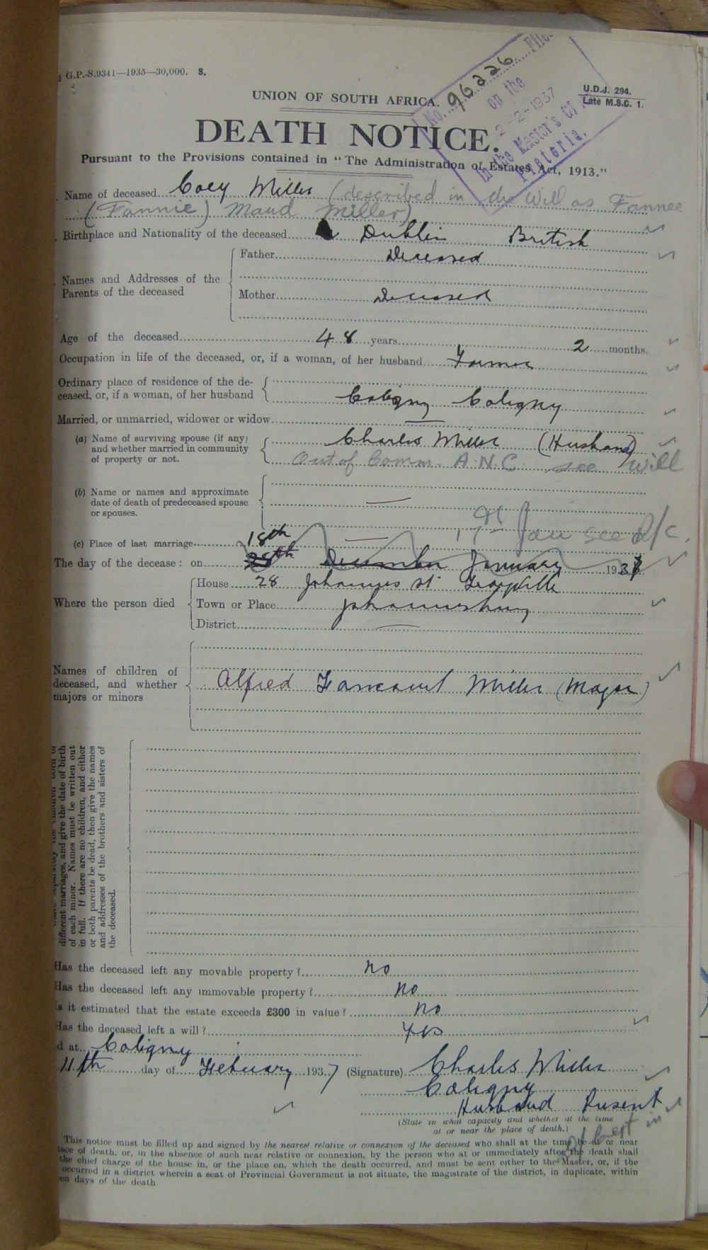 G.P.-S.9341—1935—30,000. S.
No. 96226 Filed
on the
2-2-1937
in the Master's Of
Pretoria.
UNION OF SOUTH AFRICA.
U.D.J. 294.
Late M.S.C. 1.
DEATH NOTICE.
Pursuant to the Provisions contained in "The Administration of Estates Act, 1913."
Name of deceased Coey Miller (described in the Will as Fannee
(Fannie) Maud Miller)
Birthplace and Nationality of the deceased Dublin British
Names and Addresses of the Parents of the deceased
Father Deceased
Mother Deceased
Age of the deceased 48 years 2 months.
Occupation in life of the deceased, or, if a woman, of her husband Farmer
Ordinary place of residence of the de-
ceased, or, if a woman, of her husband Coligny Coligny
Married, or unmarried, widower or widow
(a) Name of surviving spouse (if any) Charles Miller (Husband)
and whether married in community
of property or not. Out of Comm. A.N.C see Will
(b) Name or names and approximate
date of death of predeceased spouse
or spouses.
(c) Place of last marriage 18th 17th Jan see D/c.
The day of the decease: on December January 1937
Where the person died
House 28 Johannes St
Town or Place Johannesburg
District
Names of children of
deceased, and whether
majors or minors
Alfred Miller (Major)
different marriages, and give the date of birth
of each minor. Names must be written out
in full. If there are no children, and either
or both parents be dead, then give the names
and addresses of the brothers and sisters of
the deceased.
Has the deceased left any movable property? No
Has the deceased left any immovable property? No
Is it estimated that the estate exceeds £300 in value? No
Has the deceased left a will? Yes
d at Coligny
11th day of February 1937 (Signature) Charles Miller
Coligny
Husband Present
(State in what capacity and whether at the time
at or near the place of death.)
This notice must be filled up and signed by the nearest relative or connexion of the deceased who shall at the time be at or near
place of death, or, in the absence of such near relative or connexion, by the person who at or immediately after the death shall
the chief charge of the house in, or the place on, which the death occurred, and must be sent either to the Master, or, if the
occurred in a district wherein a seat of Provincial Government is not situate, the magistrate of the district, in duplicate, within
days of the death